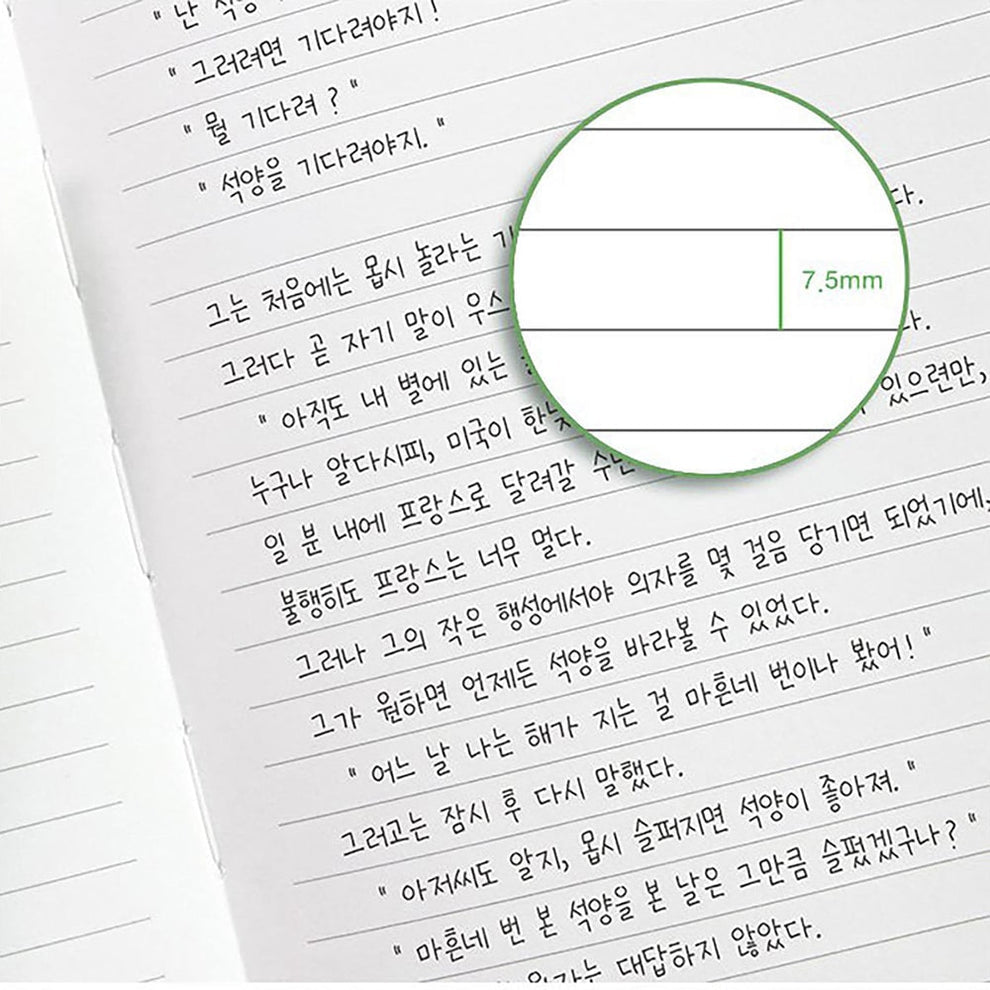 " 난 석양
" 그러려면 기다려야지!
" 뭘 기다려 ? "
" 석양을 기다려야지. "
다.
그는 처음에는 몹시 놀라는 기
그러다 곧 자기 말이 우스
다.
" 아직도 내 별에 있는
누구나 알다시피, 미국이 한낮 있으련만,
일 분 내에 프랑스로 달려갈 수만
불행히도 프랑스는 너무 멀다.
그러나 그의 작은 행성에서야 의자를 몇 걸음 당기면 되었기에,
그가 원하면 언제든 석양을 바라볼 수 있었다.
" 어느 날 나는 해가 지는 걸 마흔네 번이나 봤어! "
그러고는 잠시 후 다시 말했다.
" 아저씨도 알지, 몹시 슬퍼지면 석양이 좋아져. "
" 마흔네 번 본 석양을 본 날은 그만큼 슬펐겠구나? "
대답하지 않았다.
7.5mm